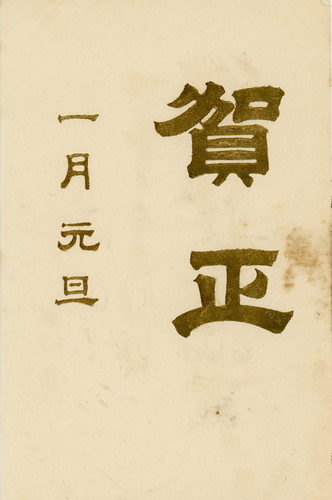 賀正
一月元旦